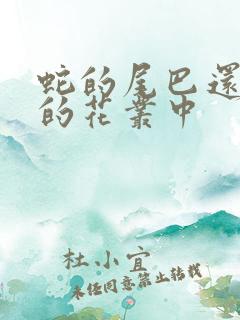 蛇的尾巴還
的花叢中
杜小宜
未經同意禁止轉載